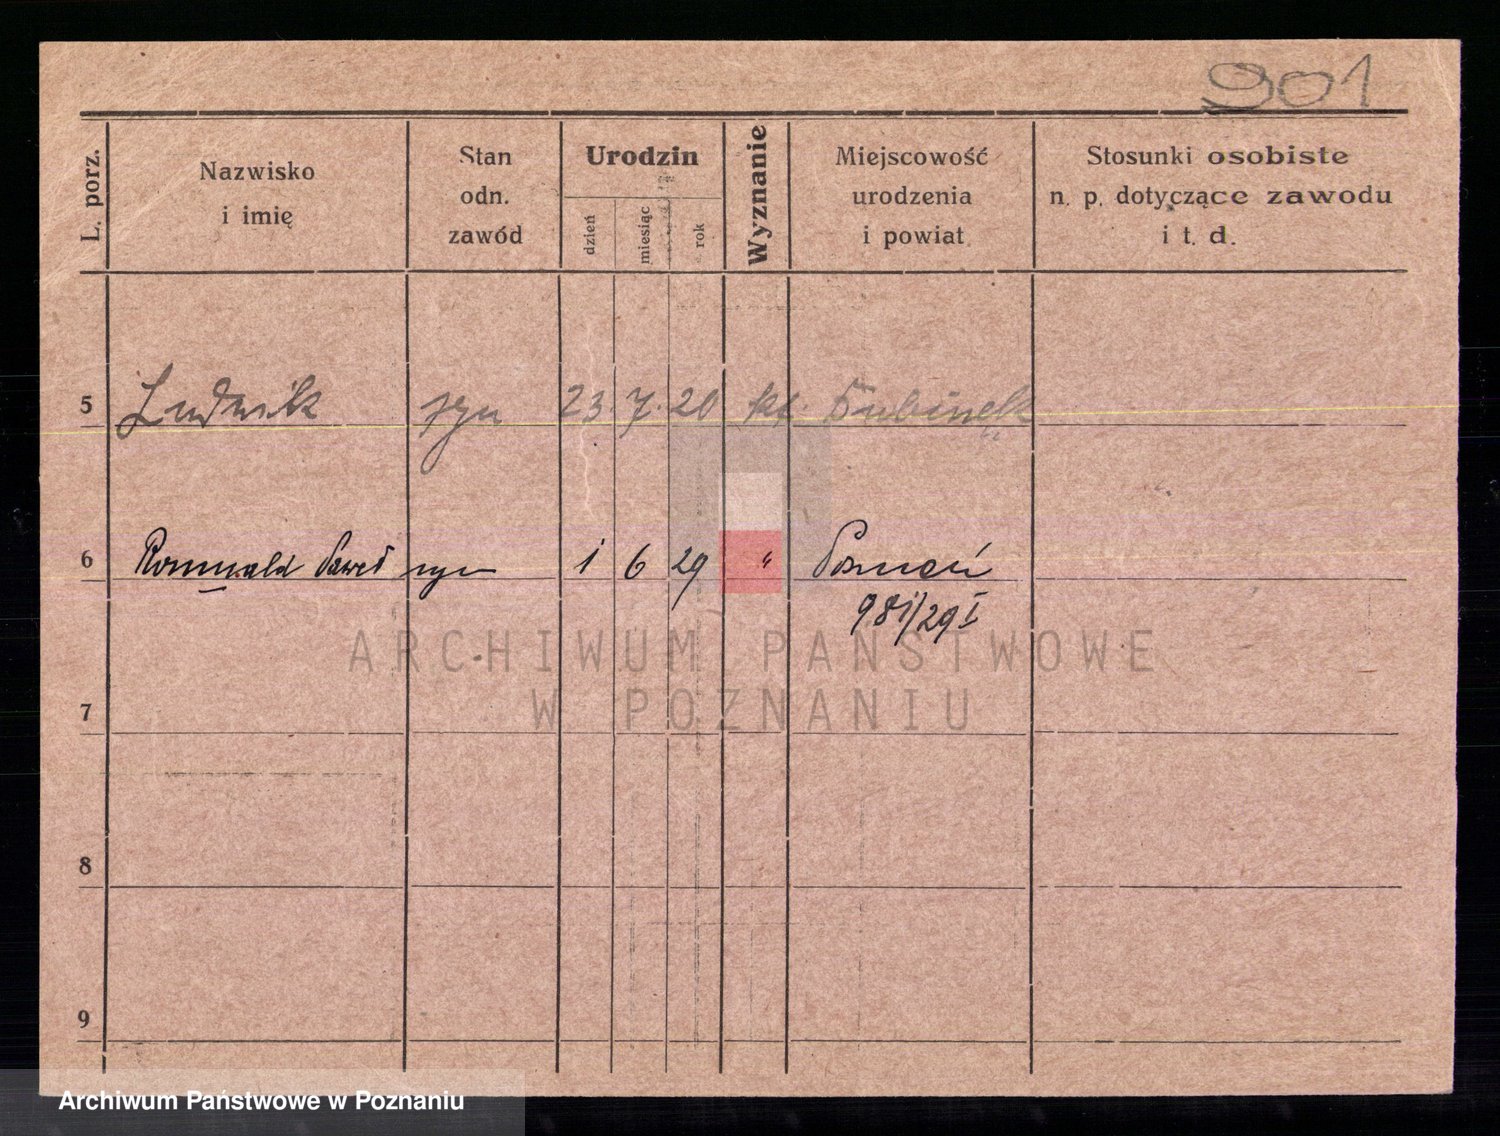 901
L. porz.
Nazwisko
i imię
Stan
odn.
zawód
Urodzin
dzień
miesiąc
rok
Wyznanie
Miejscowość
urodzenia
i powiat
Stosunki osobiste
n. p. dotyczące zawodu
i t. d.
5 Ludwik syn 23. 7. 20 kt.
6 Romuald Paweł syn 1 6 29 " Poznań
981/29 I
7
8
9
ARCHIWUM PAŃSTWOWE
W POZNANIU
Archiwum Państwowe w Poznaniu